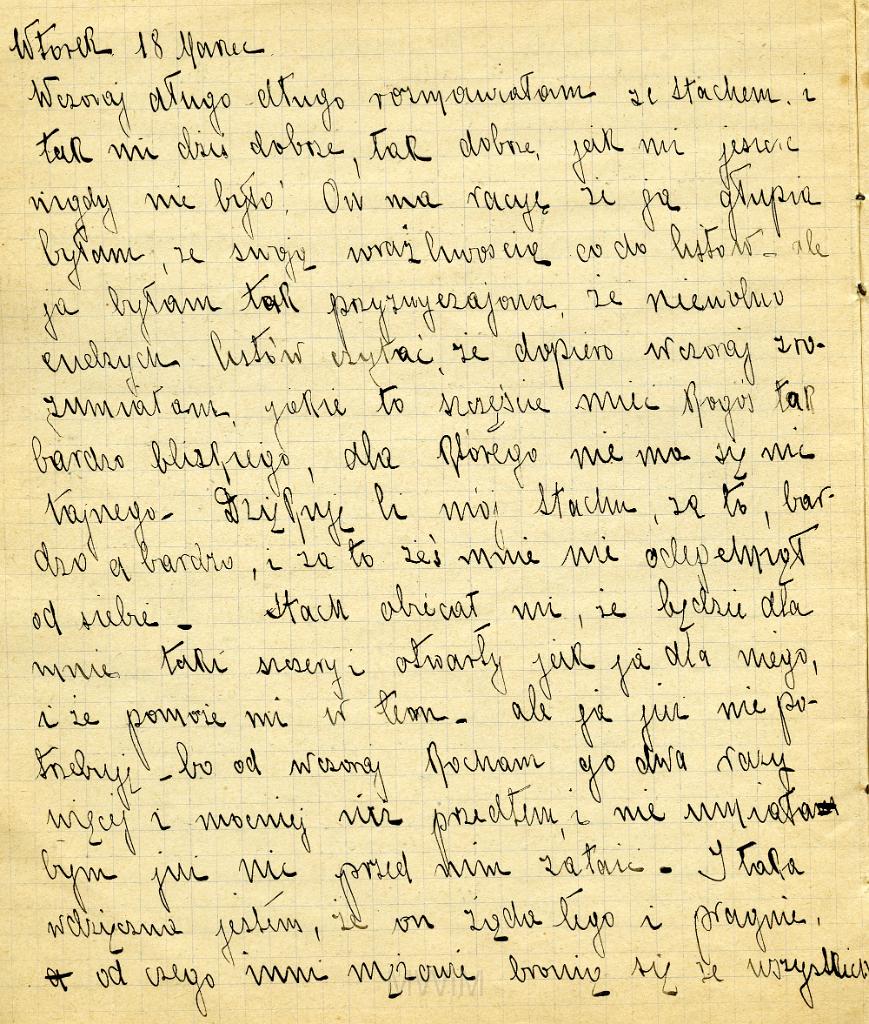 Wtorek 18 Marzec
Wczoraj długo długo rozmawiałam ze Stachem. i
tak mi dziś dobrze, tak dobrze, jak mi jeszcze
nigdy nie było! On ma racyę że ja głupia
byłam, ze swoją wrażliwością co do listów – ale
ja byłam tak przyzwyczajona, że niewolno
cudzych listów czytać, że dopiero wczoraj zro-
zumiałam, jakie to szczęście mieć kogoś tak
bardzo blizkiego, dla którego nie ma się nic
tajnego – Dziękuję Ci mój Stachu, za to, bar-
dzo a bardzo, i za to żeś mnie nie odepchnął
od siebie – Stach obiecał mi, że będzie dla
mnie taki szczery i otwarty jak ja dla niego,
i że pomoże mi w tem – ale ja już nie po-
trzebuję – bo od wczoraj kocham go dwa razy
więcej i mocniej niż przedtem, i nie umiała
bym już nic przed nim zataić – I taka
wdzięczna jestem, że on żąda tego i pragnie,
od czego inni mężowie bronią się ze wszystkich